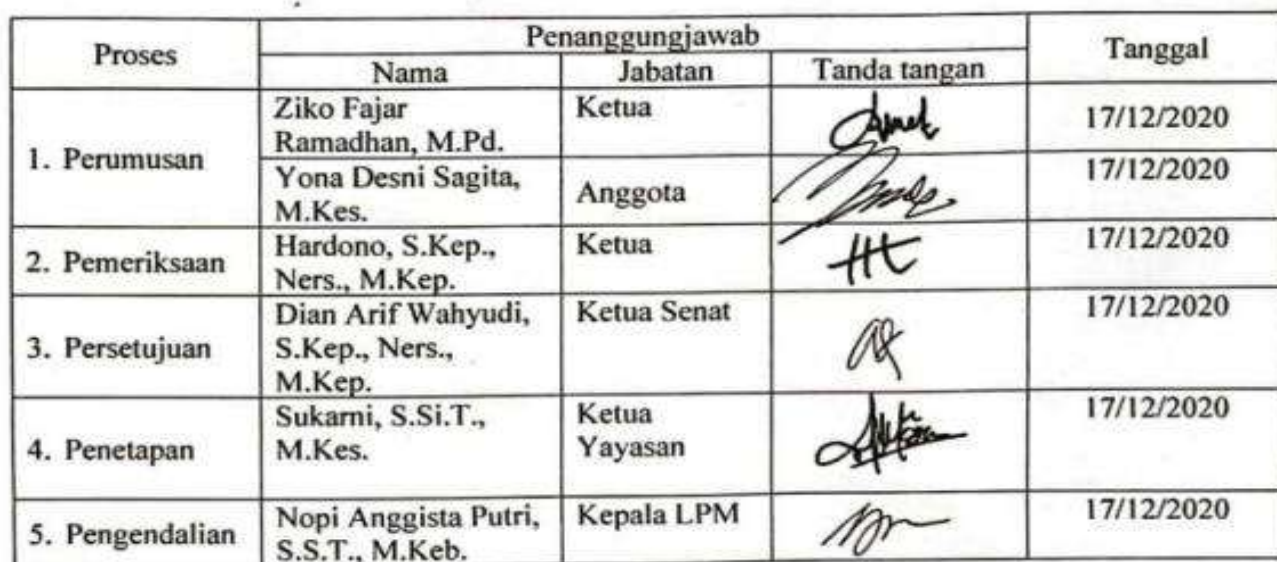 Proses
Penanggungjawab
Tanggal
Nama
Jabatan
Tanda tangan
1. Perumusan
Ziko Fajar
Ramadhan, M.Pd.
Ketua
17/12/2020
Yona Desni Sagita,
M.Kes.
Anggota
17/12/2020
2. Pemeriksaan
Hardono, S.Kep.,
Ners., M.Kep.
Ketua
17/12/2020
3. Persetujuan
Dian Arif Wahyudi,
S.Kep., Ners.,
M.Kep.
Ketua Senat
17/12/2020
4. Penetapan
Sukarni, S.Si.T.,
M.Kes.
Ketua
Yayasan
17/12/2020
5. Pengendalian
Nopi Anggista Putri,
S.S.T., M.Keb.
Kepala LPM
17/12/2020